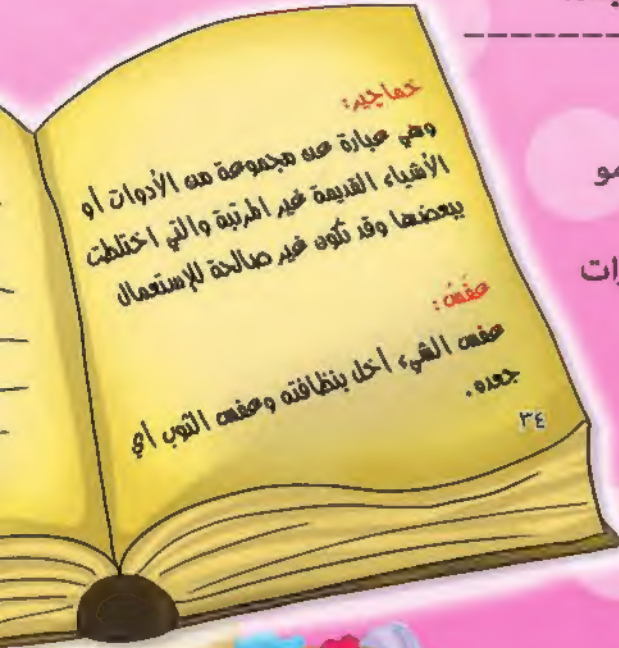 خماجير:
وهي عبارة عن مجموعة من الأدوات أو
الأشياء القديمة غير المرتبة والتي اختلطت
ببعضها وقد تكون غير صالحة للإستعمال
عفسَ:
عفس الشيء أخل بنظافته وعفس الثوب أي
جعده.
٣٤